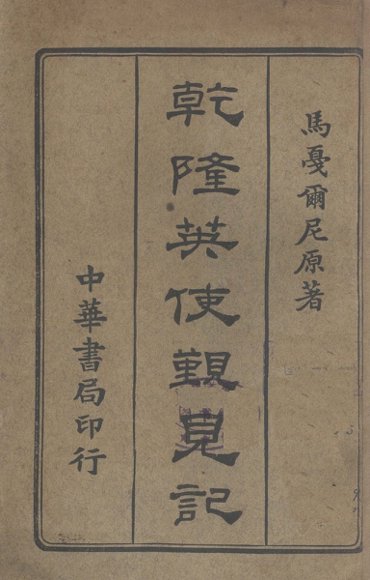 馬戛爾尼原著
乾隆英使覲見記
中華書局印行